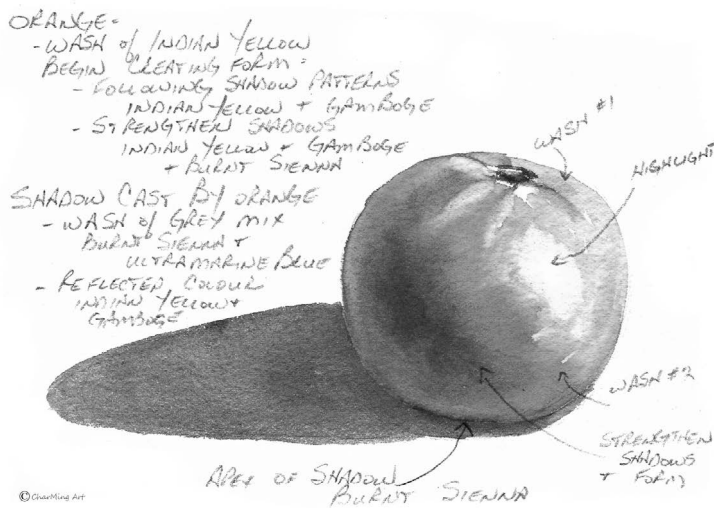 ORANGE -
- WASH of INDIAN YELLOW
BEGIN CREATING FORM:
- FOLLOWING SHADOW PATTERNS
INDIAN YELLOW + GAMBOGE
- STRENGTHEN SHADOWS
INDIAN YELLOW + GAMBOGE
+ BURNT SIENNA
SHADOW CAST BY ORANGE
- WASH of GREY MIX
BURNT SIENNA +
ULTRAMARINE BLUE
- REFLECTED COLOUR
INDIAN YELLOW +
GAMBOGE
WASH #1
HIGHLIGHT
WASH #2
STRENGTHEN
SHADOWS
+ FORM
APEX OF SHADOW
BURNT SIENNA
© CharMing Art